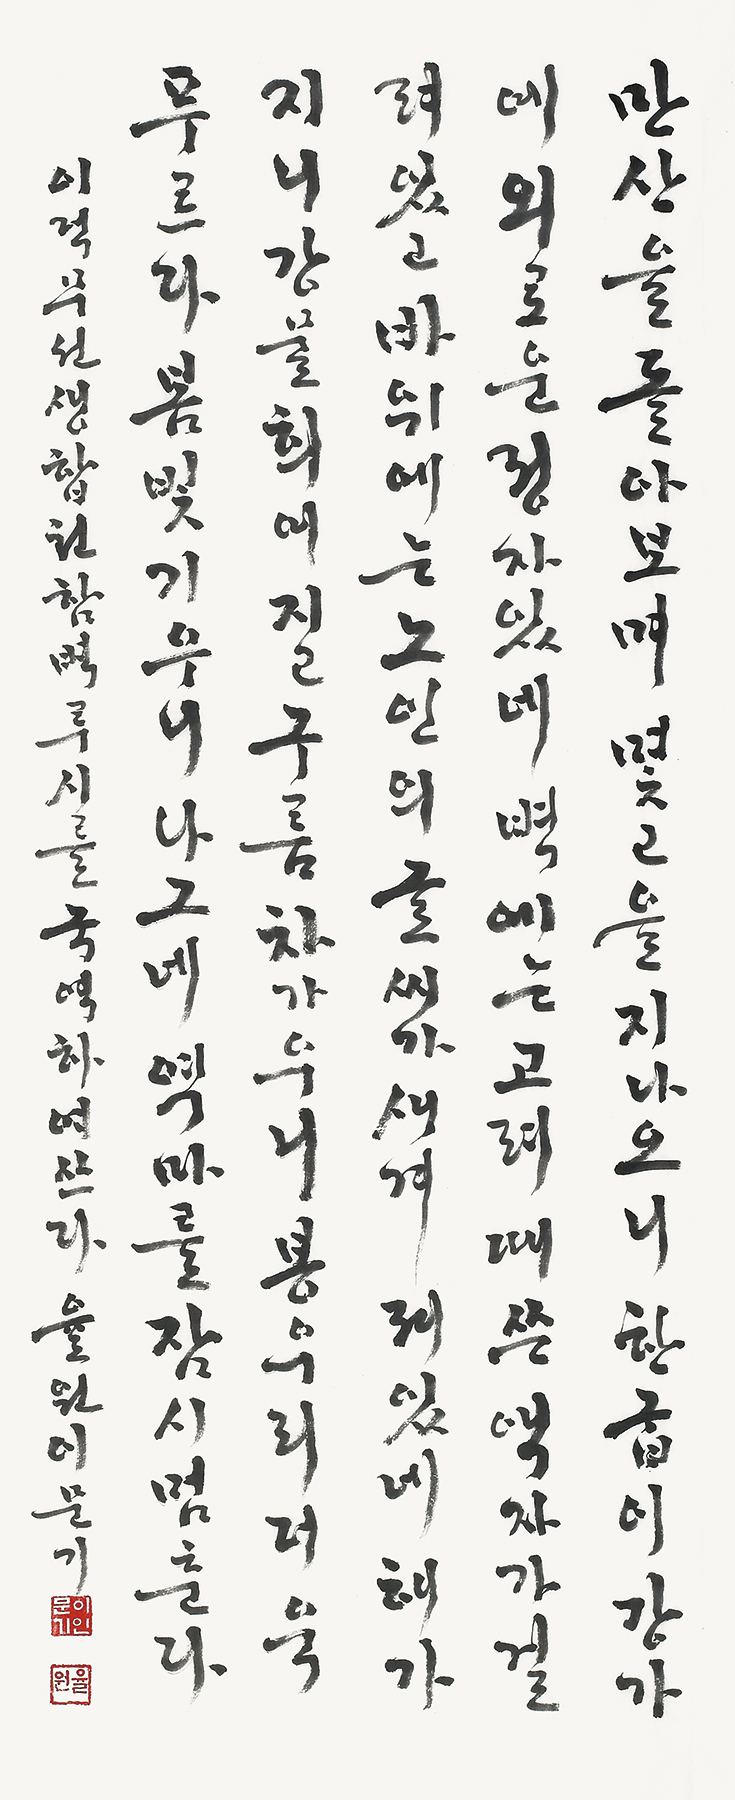 만산을돌아보며 몇고을지나오니 한굽이강가
에외로운정자있네 벽에는고려때쓴액자가걸
려있고바위에는노인의글씨가새겨져있네 해가
지니강물희여지고구름차가우니봉우리더욱
푸르다 봄빛기우니나그네 역마를잠시멈춘다
이적무선생합천함벽루시를국역하여쓰다 율원이문기
이인문기
율원